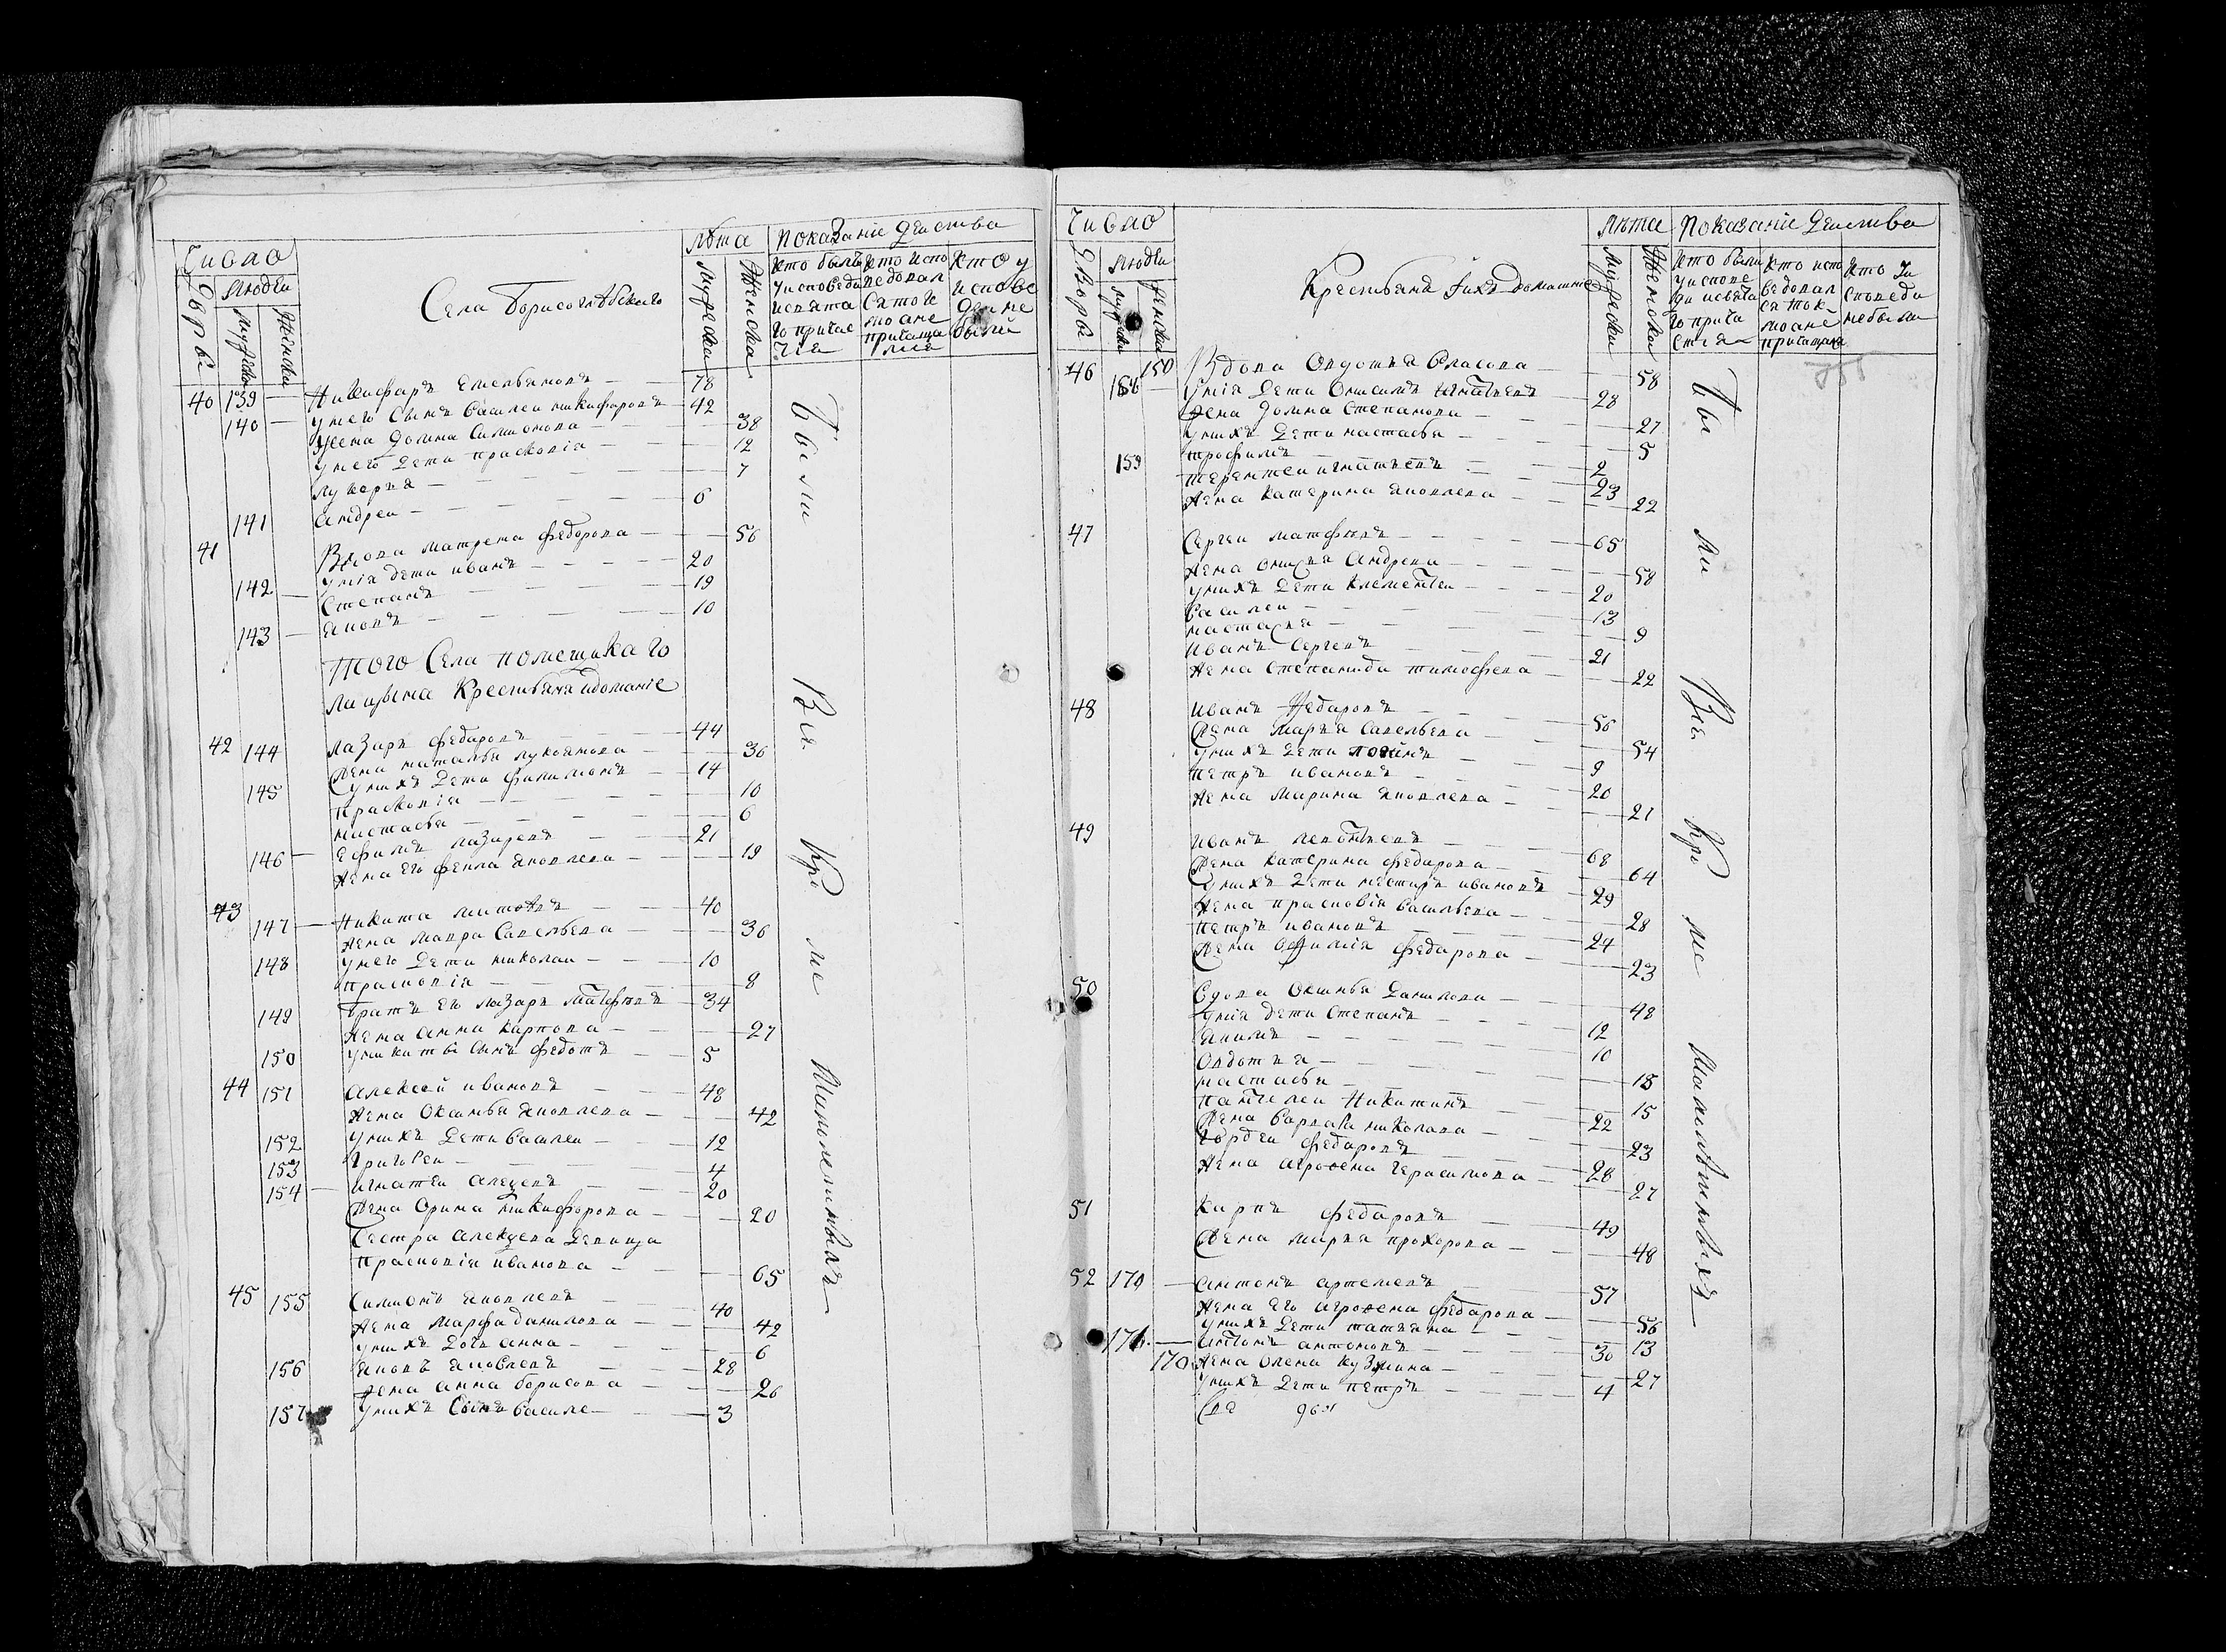 Число
Дворы
Людеи
мужеска
женска
Села Борисоглѣбскаго
Лѣта
мужеска
женска
Показание деиства
Кто былъ у исповеди и святаго причастия
Кто исповедовался токмо а не причащался
Кто у исповеди не были
40 139 — Никифаръ Емельяновъ — 78
140 — у него Сынъ Василеи никифаровъ — 42
Жена Домна Симионова — 38
у него дети прасковия — 12
лукеря — 7
141 андреи — 6
41 Вдова матрена федорова — 56
у нія дети иванъ — 20
142 — Степанъ — 19
143 — яковъ — 10
Того Села помещика го
Лацына Крестьяня идоманіе
42 144 лазарь федаровъ — 44
Жена наталья лукоянова — 36
145 у нихъ дети филимонъ — 14
прасковія — 10
настасья — 6
146 — ефимъ лазаревъ — 21
жена его фекла яковлева — 19
43 147 — Никита матфѣвъ — 40
жена мавра Савельева — 36
148 у него дети николаи — 10
прасковія — 8
149 братъ ево лазарь матфѣвъ — 34
жена анна карпова — 27
150 у никиты сынъ федотъ — 5
44 151 алексѣй ивановъ — 48
жена Оксинья яковлева — 42
152 у нихъ дети василеи — 12
153 григореи — 4
154 — игнатеи алексевъ — 20
жена Орина никифорова — 20
Сестра алексева девица
прасковія иванова — 65
45 155 Симионъ яковлевъ — 40
жена марфа данилова — 42
у нихъ дочь анна — 6
156 яковъ яковлевъ — 28
жена анна борисова — 26
157 у нихъ Сынъ василе — 3
Были Вся Кроме Малолетныхъ
Число
Дворы
Людеи
мужеска
женска
Крестьяня и ихъ домашние
Лѣта
мужеска
женска
Показание деиства
Кто были у исповеди и святаго причастия
Кто исповедовался токмо а не причащался
Кто у исповеди не были
46 150 Вдова Овдотья Власова — 58
158 — у нія дети Онисимъ игнатьевъ — 28
жена домна степанова — 27
у нихъ дети настасья — 5
трофимъ — 2
159 терентеи игнатьевъ — 23
жена катерина яковлева — 22
47 Сергеи матфѣвъ — 65
жена онисья андреева — 58
у нихъ дети клементеи — 20
василеи — 13
настасья — 9
иванъ сергевъ — 21
жена степанида тимофева — 22
48 иванъ федаровъ — 56
жена марья савельева — 54
у нихъ дети — 9
петръ ивановъ — 20
жена марина яковлева — 21
49 иванъ леонтьевъ — 68
жена катерина федарова — 64
у нихъ дети нестиръ ивановъ — 29
жена прасковія васильева — 28
петръ ивановъ — 24
жена офимія федарова — 23
50 вдова Оксинья данилова — 48
у нія дети степанъ — 12
якимъ — 10
овдотья — 18
настасья — 15
пантелеи Никитинъ — 22
жена варвара николава — 23
гордеи федаровъ — 28
жена агрофена герасимова — 27
51 Карпъ федаровъ — 49
жена марья прохорова — 48
52 170 — антонъ артемевъ — 57
жена его агрофена федарова — 56
у нихъ дети татьяна — 13
171 — антонъ антоновъ — 30
170 жена олена кузмина — 27
у нихъ дети петръ — 4
Были Вся Кроме Малолѣтныхъ